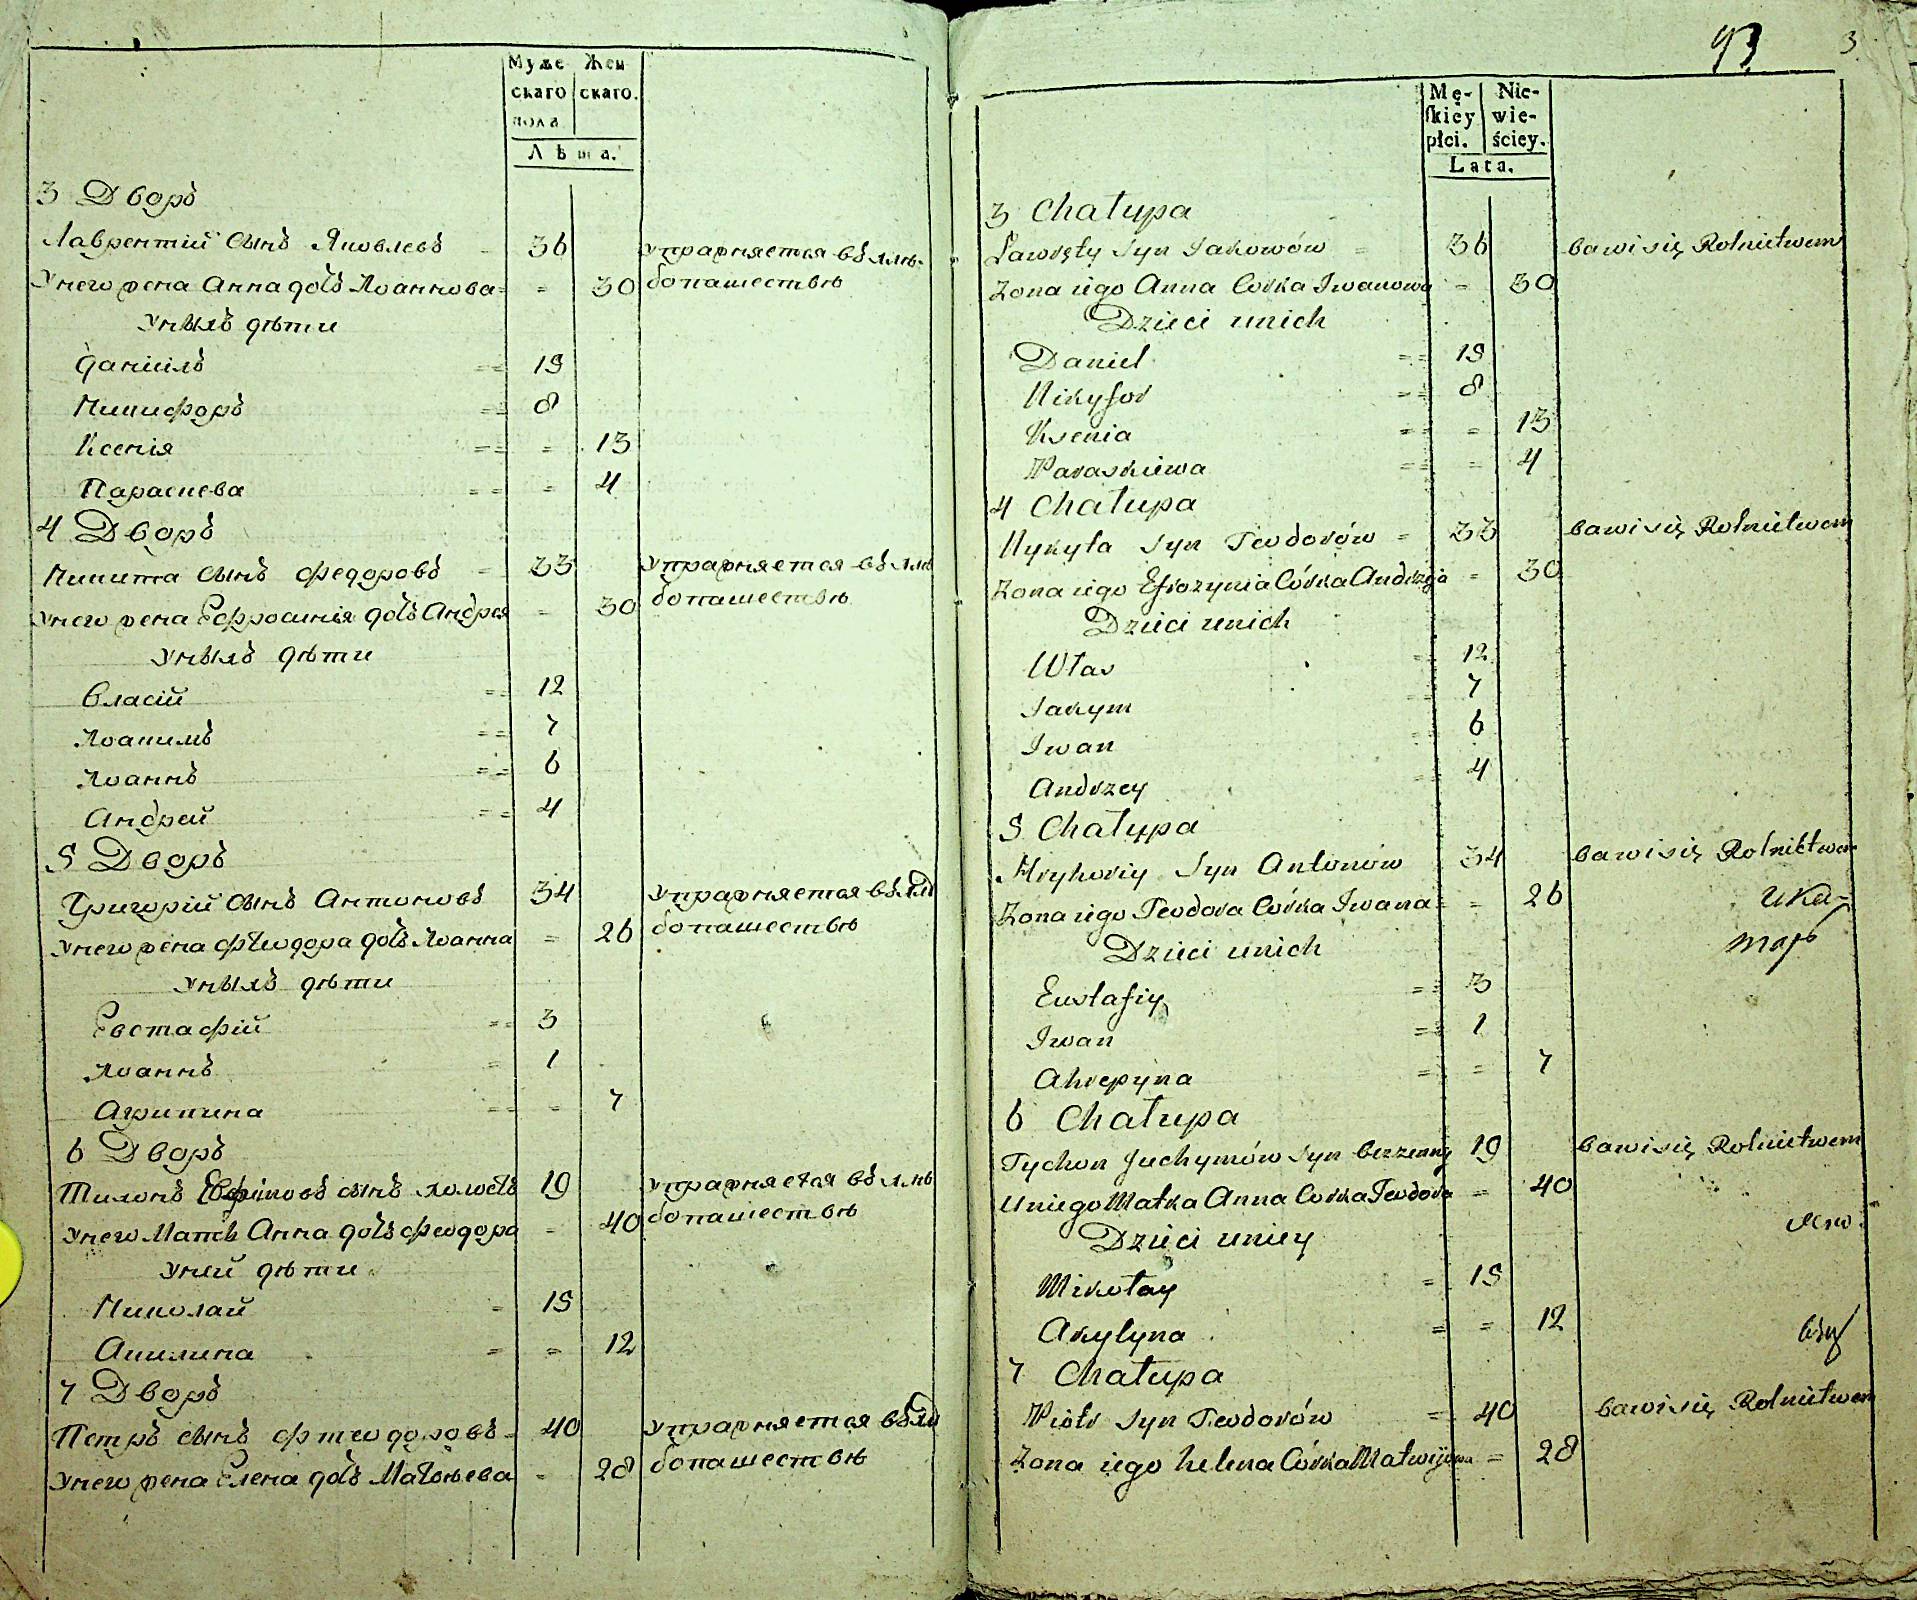 Муже Жен
скаго скаго.
пола
Лѣта.
3 Дворъ
Лаврентій сынъ Яковлевъ 36 упражняется въ хлѣ-
У него жена Анна дочь Іоаннова 30 бопашествѣ
У нихъ дѣти
Даніилъ 15
Никифоръ 8
Ксенія 13
Параскева 4
4 Дворъ
Никита сынъ Федоровъ 33 упражняется въ хлѣ
У него жена Ефросинія дочь Андрея 30 бопашествѣ
У нихъ дѣти
Власій 12
Іоакимъ 7
Іоаннъ 6
Андрей 4
5 Дворъ
Григорій сынъ Антоновъ 34 упражняется въ хлѣ
У него жена Феодора дочь Іоанна 26 бопашествѣ
У нихъ дѣти
Евстафій 3
Іоаннъ 1
Агрипина 7
6 Дворъ
Тихонъ сынъ холостъ 19 упражняется въ хлѣ
У него Мать Анна дочь Феодора 40 бопашествѣ
У ней дѣти
Николай 15
Акилина 12
7 Дворъ
Петръ сынъ Фтеодоровъ 40 упражняется въ хлѣ
У него жена Елена дочь Матѳѣева 28 бопашествѣ
93 3
Mę- Nie-
ſkiey wie-
płci. ściey.
Lata.
3 Chałupa
Ławręty Syn Jakowów 36 bawi się Rolnictwem
Zona iego Anna Corka Iwanowa 30
Dzieci u nich
Daniel 15
Nikyfor 8
Ksenia 13
Paraskiewa 4
4 Chałupa
Nykyta Syn Teodorów 33 bawi się Rolnictwem
Zona iego Efrozynia Córka Andrzeja 30
Dzieci u nich
Włas 12
Jakym 7
Iwan 6
Andrzey 4
5 Chałupa
Hryhoriy Syn Antonów 34 bawi się Rolnictwem
Zona iego Teodora Córka Iwana 26
Dzieci u nich
Eustafiy 3
Iwan 1
Ahrepyna 7
6 Chałupa
Tychon Juchymów Syn bezzenny 19 bawi się Rolnictwem
U niego Matka Anna Corka Teodora 40
Dzieci u niey
Mikołay 15
Akylyna 12
7 Chałupa
Piotr Syn Teodorów 40 bawi się Rolnictwem
Zona iego helena Córka Matwijowa 28